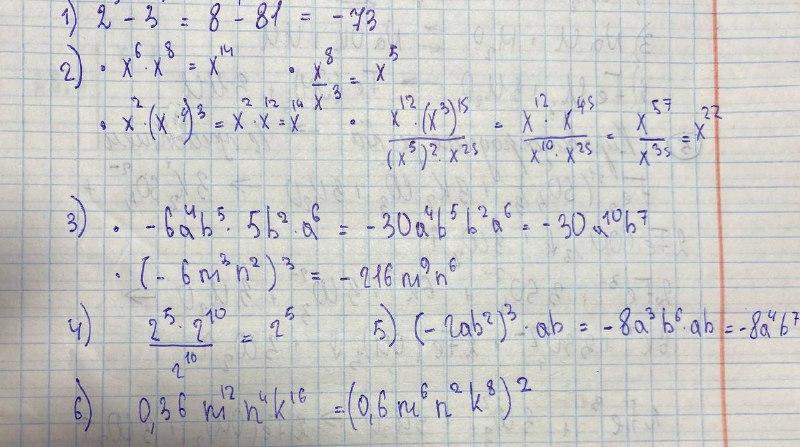 1) 2 - 3 = 8 - 81 = -73
2) • x⁶ · x⁸ = x¹⁴ • x⁸/x³ = x⁵
• x² · (x⁴)³ = x² · x¹² = x¹⁴ • x¹² · (x³)¹⁵ / (x⁵)² · x²⁵ = x¹² · x⁴⁵ / x¹⁰ · x²⁵ = x⁵⁷ / x³⁵ = x²²
3) • -6a⁴b⁵ · 5b² · a⁶ = -30a⁴b⁵b²a⁶ = -30a¹⁰b⁷
• (-6m³n²)³ = -216m⁹n⁶
4) 2⁵ · 2¹⁰ / 2¹⁰ = 2⁵ 5) (-2ab²)³ · ab = -8a³b⁶ · ab = -8a⁴b⁷
6) 0,36 m¹²n⁴k¹⁶ = (0,6m⁶n²k⁸)²